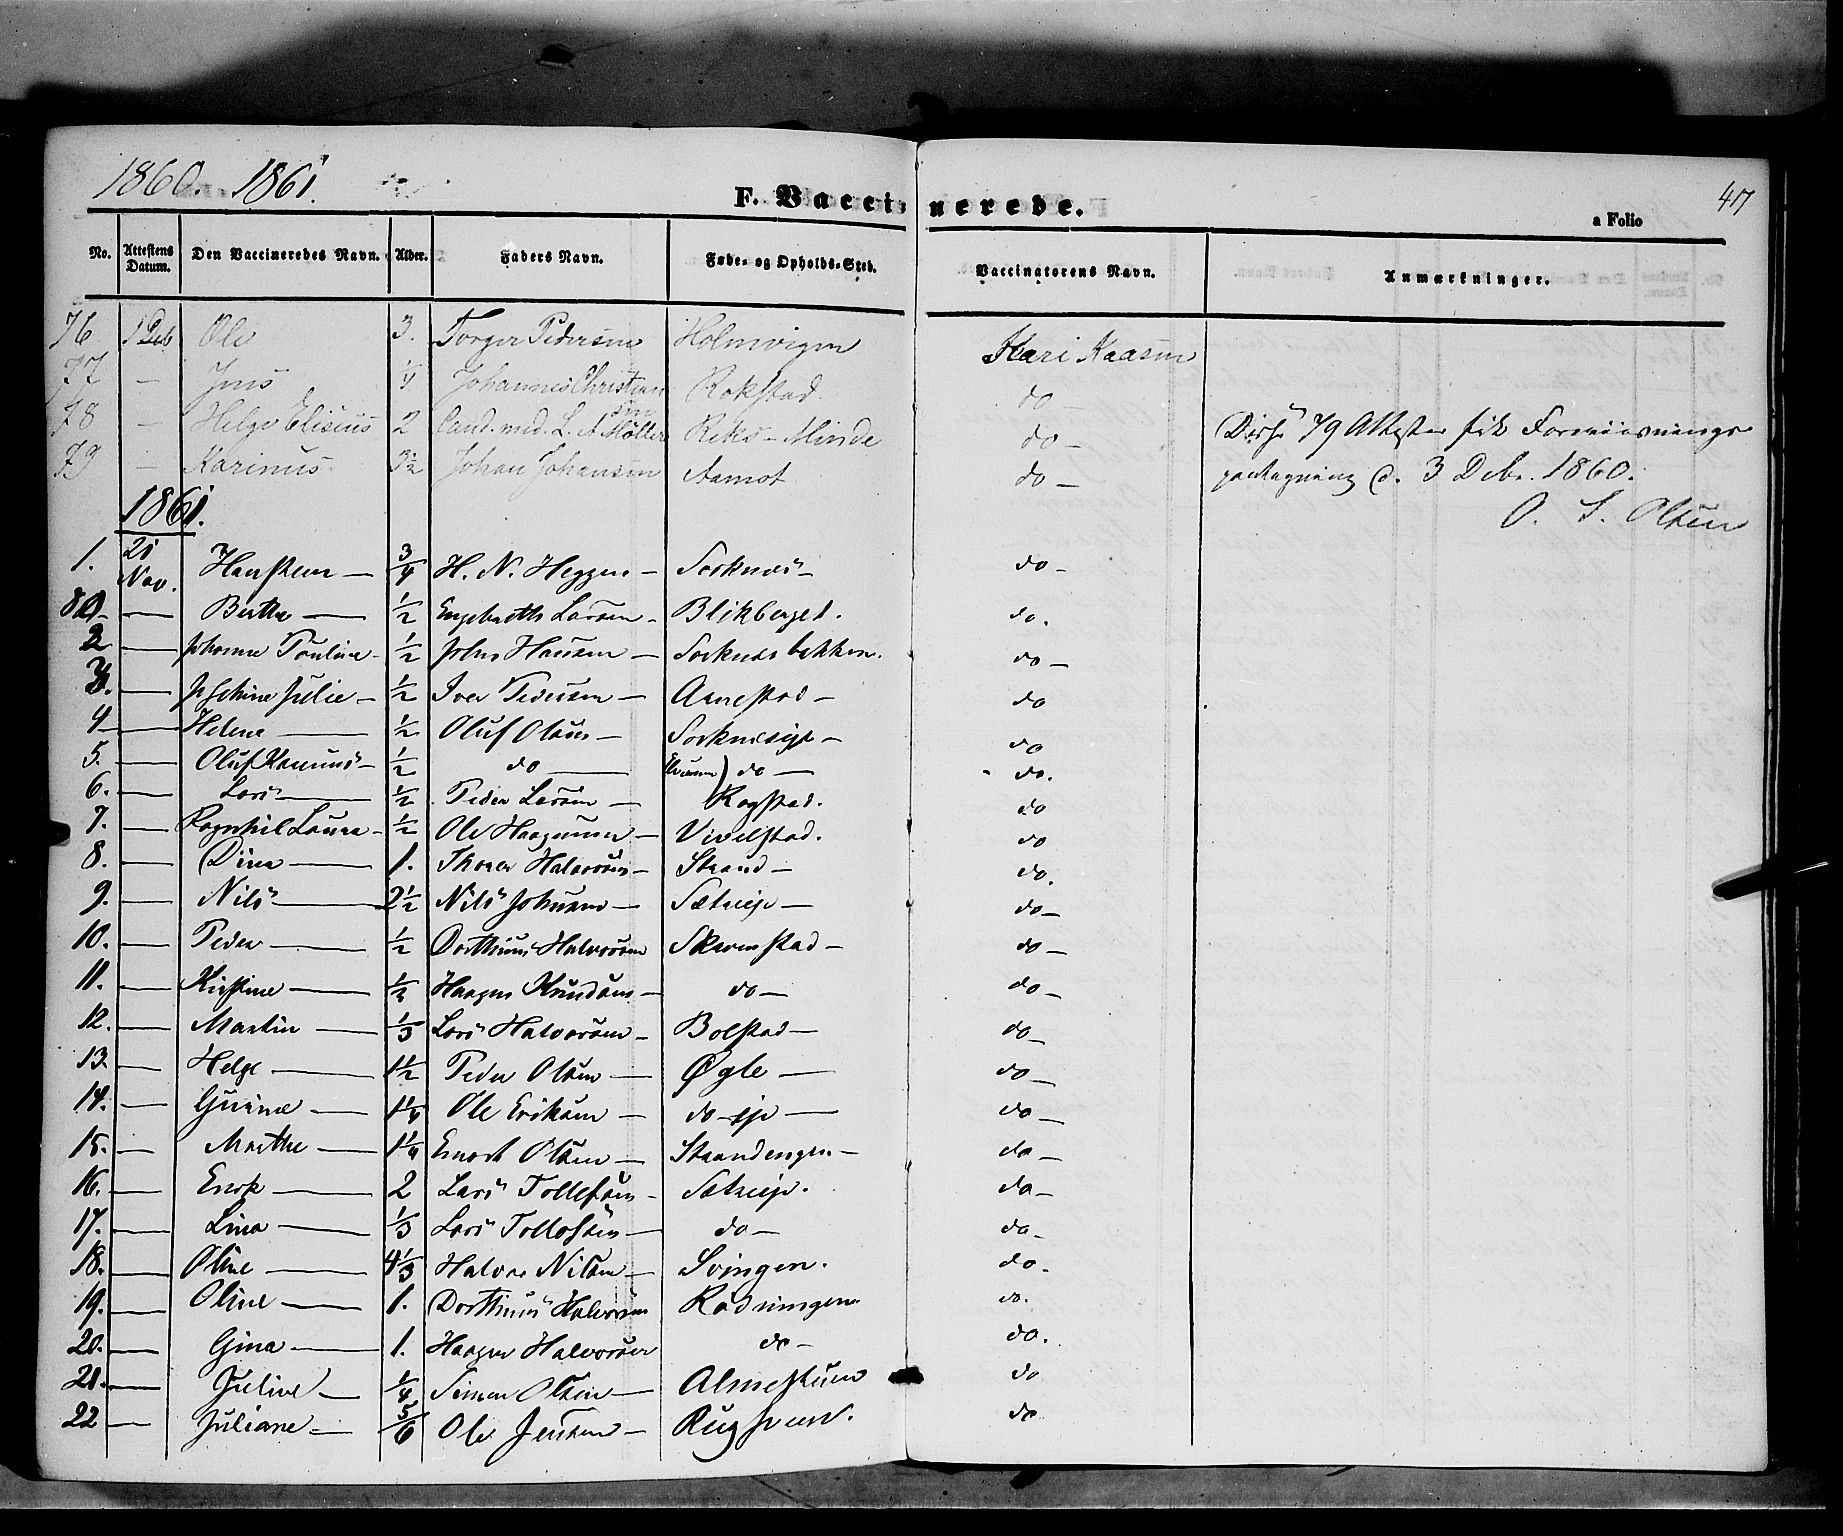 1860. 1861.
F. Vaccinerede.
47
a Folio
No. Attestens Datum. Den Vaccineredes Navn. Alder. Faders Navn. Føde- og Opholds-Sted. Vaccinatorens Navn. Anmærkninger.
76 1 Deb Ole 3. Torger Pedersen Holmvigen Kari Kaasen
77 — Jens 1/4 Johannes Christiansen Rokstad. do
78 — Helge Elisius 2 Cand. med. L. A Møller Reks-Minde do — Disse 79 Attester fik Formiisnings
79 — Karinus 3½ Johan Johansen Aamot do — paategning d. 3 Debr. 1860.
O. S. Olsen
1861.
1. 21 Nov. Hansteen — 3/4 H. N. Heggen — Sorknæs — do —
Berthe — 1/2 Engebreth Larsen — Blikberget. do.
2 — Johanne Pauline — 1/2 Johs Hansen — Sorknesbakken. do —
3. — Josephine Julie — 1/2 Iver Pedersen — Aanestad — do
4 — Helene — 1/2 Oluf Olsen — Sorkneseje — do
5. — Oluf — 1/2 do — do — do.
6. — Lars — 1/2 Peder Larsen — Rogstad. do
7. — Ragnhil Laura — 1/2 Ole Haagensen — Vivelstad. do
8. — Dina — 1. Thorer Halvorsen — Strand — do.
9. — Nils — 2½ Nils Johnsen — Sætreeje — do —
10. — Peder — 1/2 Dorthinus Halvorsen Skramstad — do —
11. — Kirstine — 1/2 Haagen Knudsen — do — do —
12. — Martin — 1/3 Lars Halvorsen — Bolstad — do —
13. — Helge — 1½ Peder Olsen — Øgle — do —
14. — Gurine — 1¼ Ole Eriksen — do — eje — do —
15. — Marthe — 1¼ Enert Olsen — Strandengen — do —
16. — Enok — 2 Lars Tollefsen — Sætreeje. do —
17. — Lina — 1/3 Lars Tollefsen — do — do —
18. — Oline — 4⅓ Halvor Nilsen — Svingen. do.
19. — Oline — 1. Dorthinus Halvorsen Rødningen do.
20. — Gina — 1. Haagen Halvorsen do — do.
21. — Juline — 1/4 Simen Olsen — do
22 — Juliane — 5/6 Ole Jensen — do